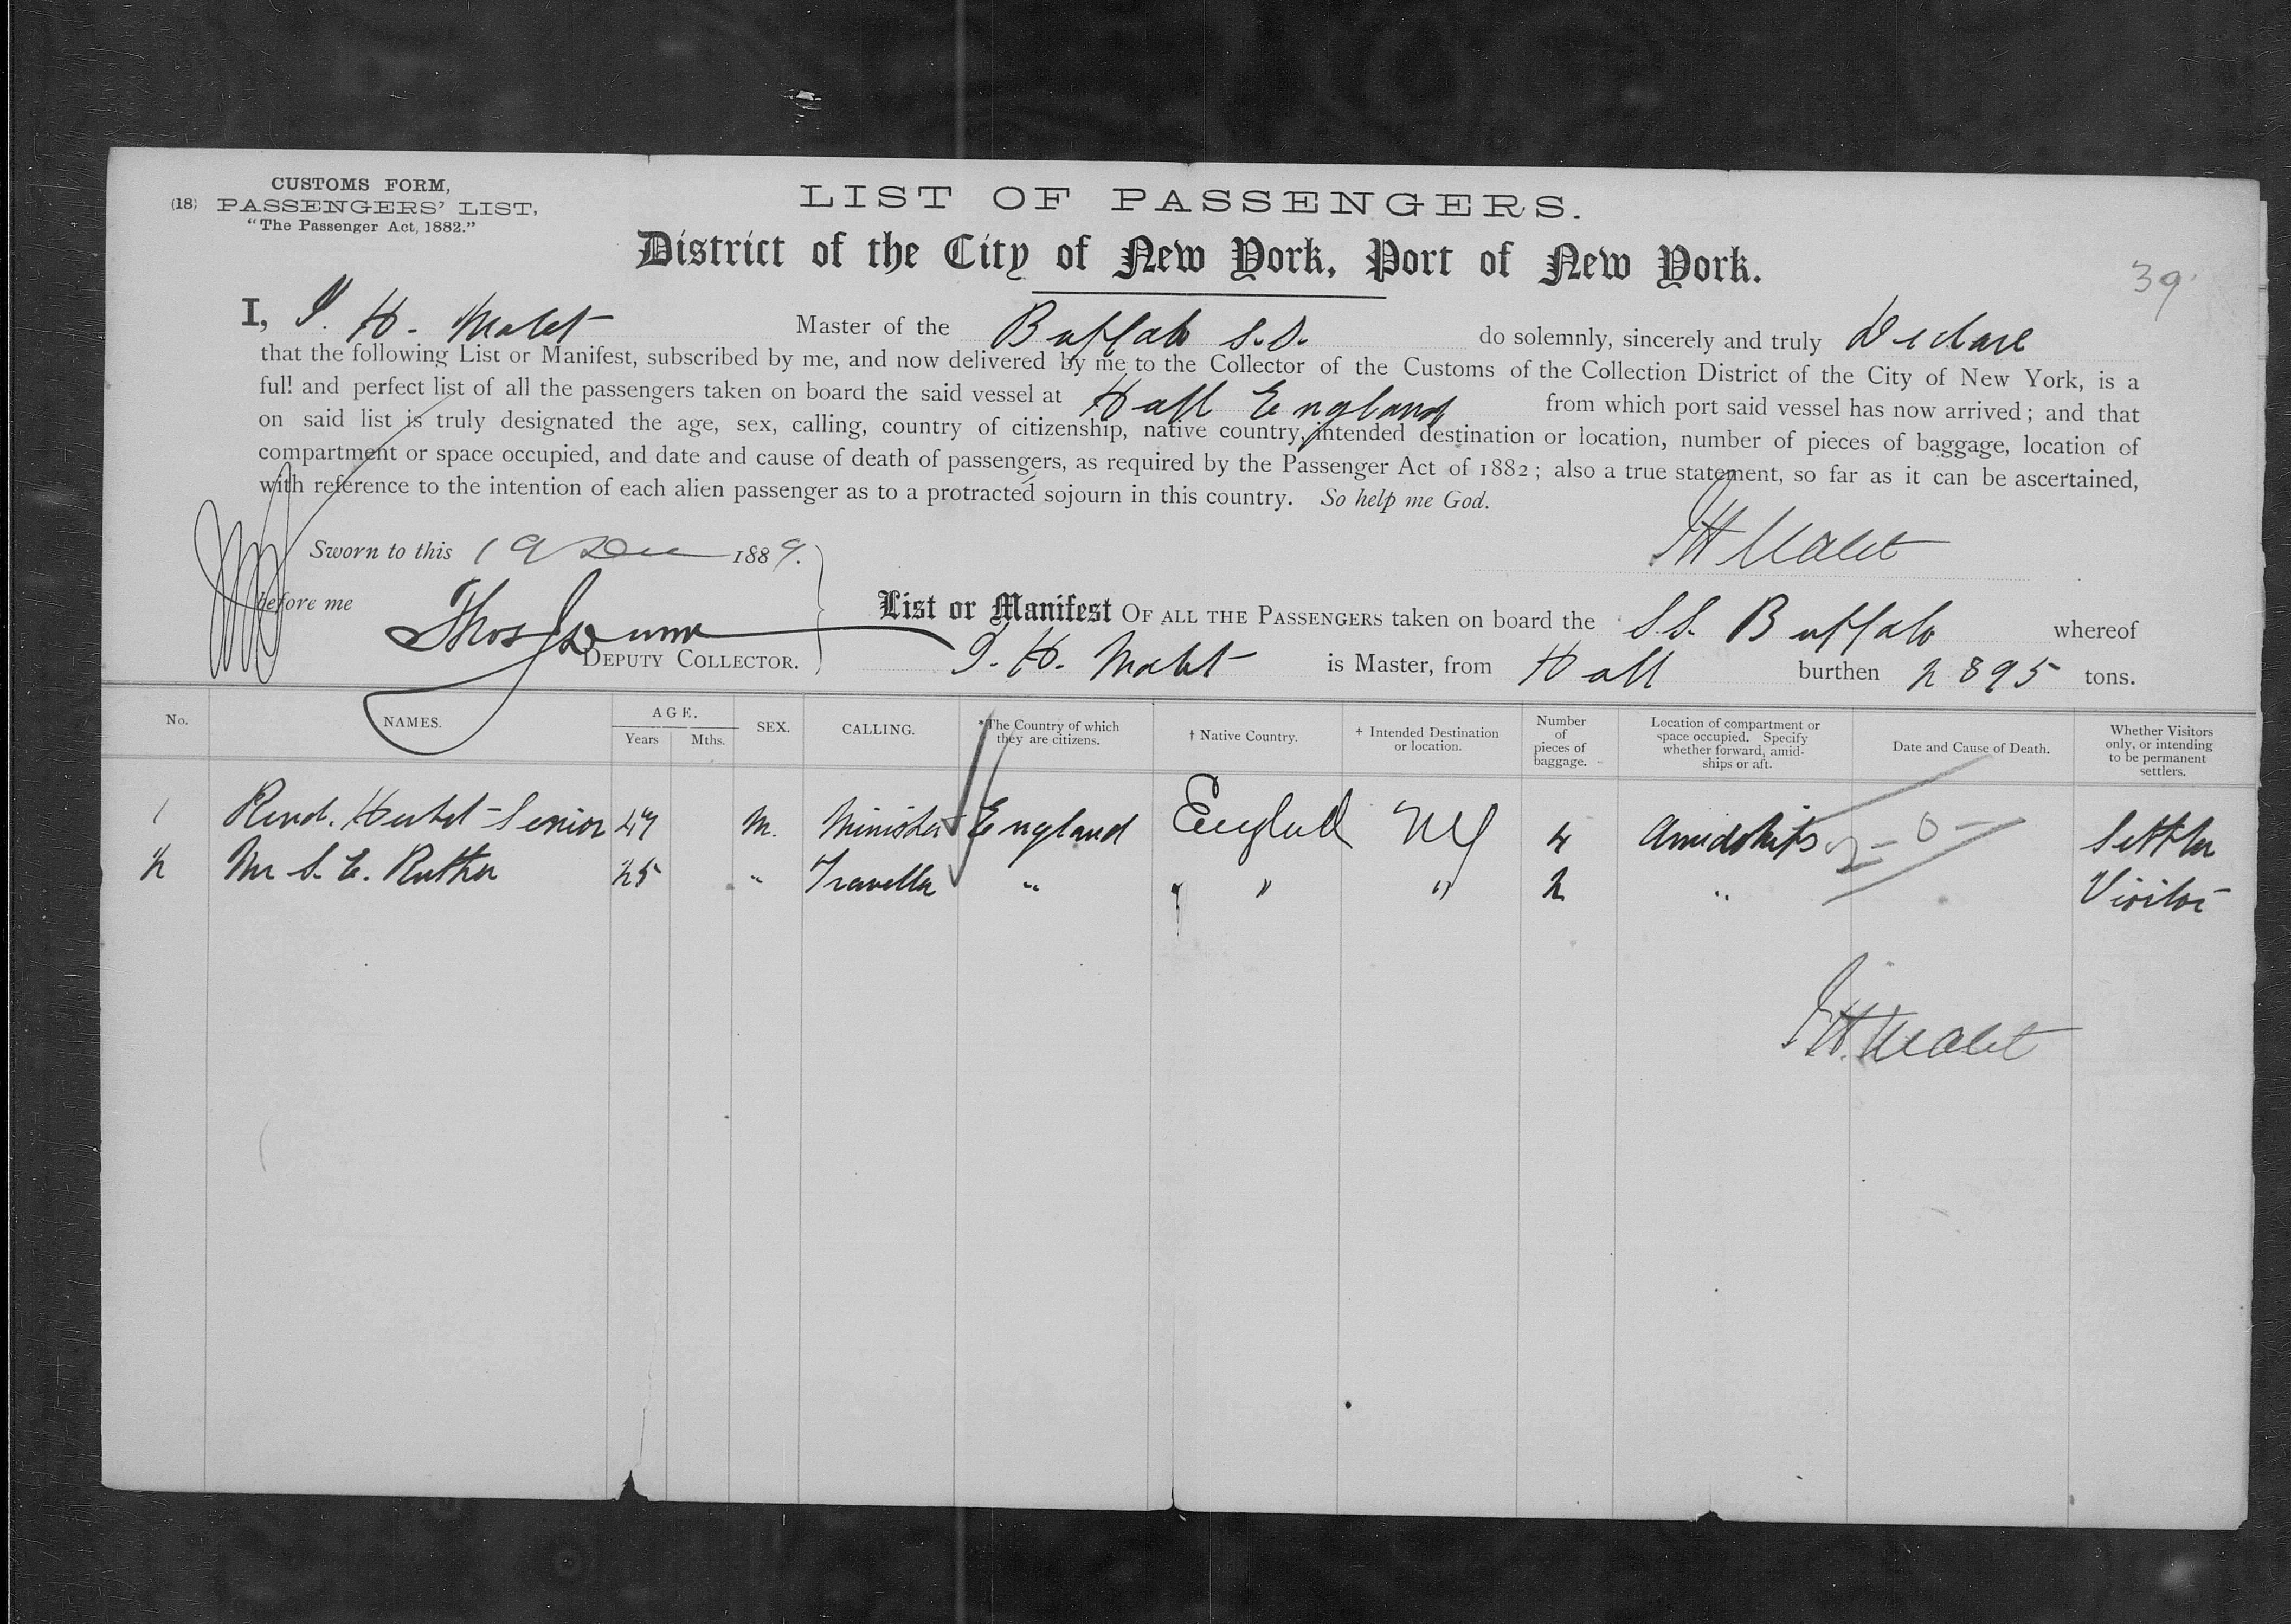 CUSTOMS FORM,
(18) PASSENGERS' LIST,
"The Passenger Act, 1882."
LIST OF PASSENGERS.
District of the City of New York, Port of New York.
39
I, J. H. Malet Master of the Buffalo S.S. do solemnly, sincerely and truly Declare
that the following List or Manifest, subscribed by me, and now delivered by me to the Collector of the Customs of the Collection District of the City of New York, is a
full and perfect list of all the passengers taken on board the said vessel at Hull England from which port said vessel has now arrived; and that
on said list is truly designated the age, sex, calling, country of citizenship, native country, intended destination or location, number of pieces of baggage, location of
compartment or space occupied, and date and cause of death of passengers, as required by the Passenger Act of 1882; also a true statement, so far as it can be ascertained,
with reference to the intention of each alien passenger as to a protracted sojourn in this country. So help me God.
JH Malet
Sworn to this 19 Dec 1889.
before me Thos J Dunn
DEPUTY COLLECTOR.
List or Manifest OF ALL THE PASSENGERS taken on board the S.S. Buffalo whereof
J. H. Malet is Master, from Hull burthen 2895 tons.
No. NAMES. AGE. Years Mths. SEX. CALLING. *The Country of which they are citizens. † Native Country. + Intended Destination or location. Number of pieces of baggage. Location of compartment or space occupied. Specify whether forward, amidships or aft. Date and Cause of Death. Whether Visitors only, or intending to be permanent settlers.
1 Revd. Senior 47 M. Minister England England NY 4 Amidships -0- Settler
2 Mr S. E. 25 " Traveller " " " " 2 " Visitor
JH. Malet